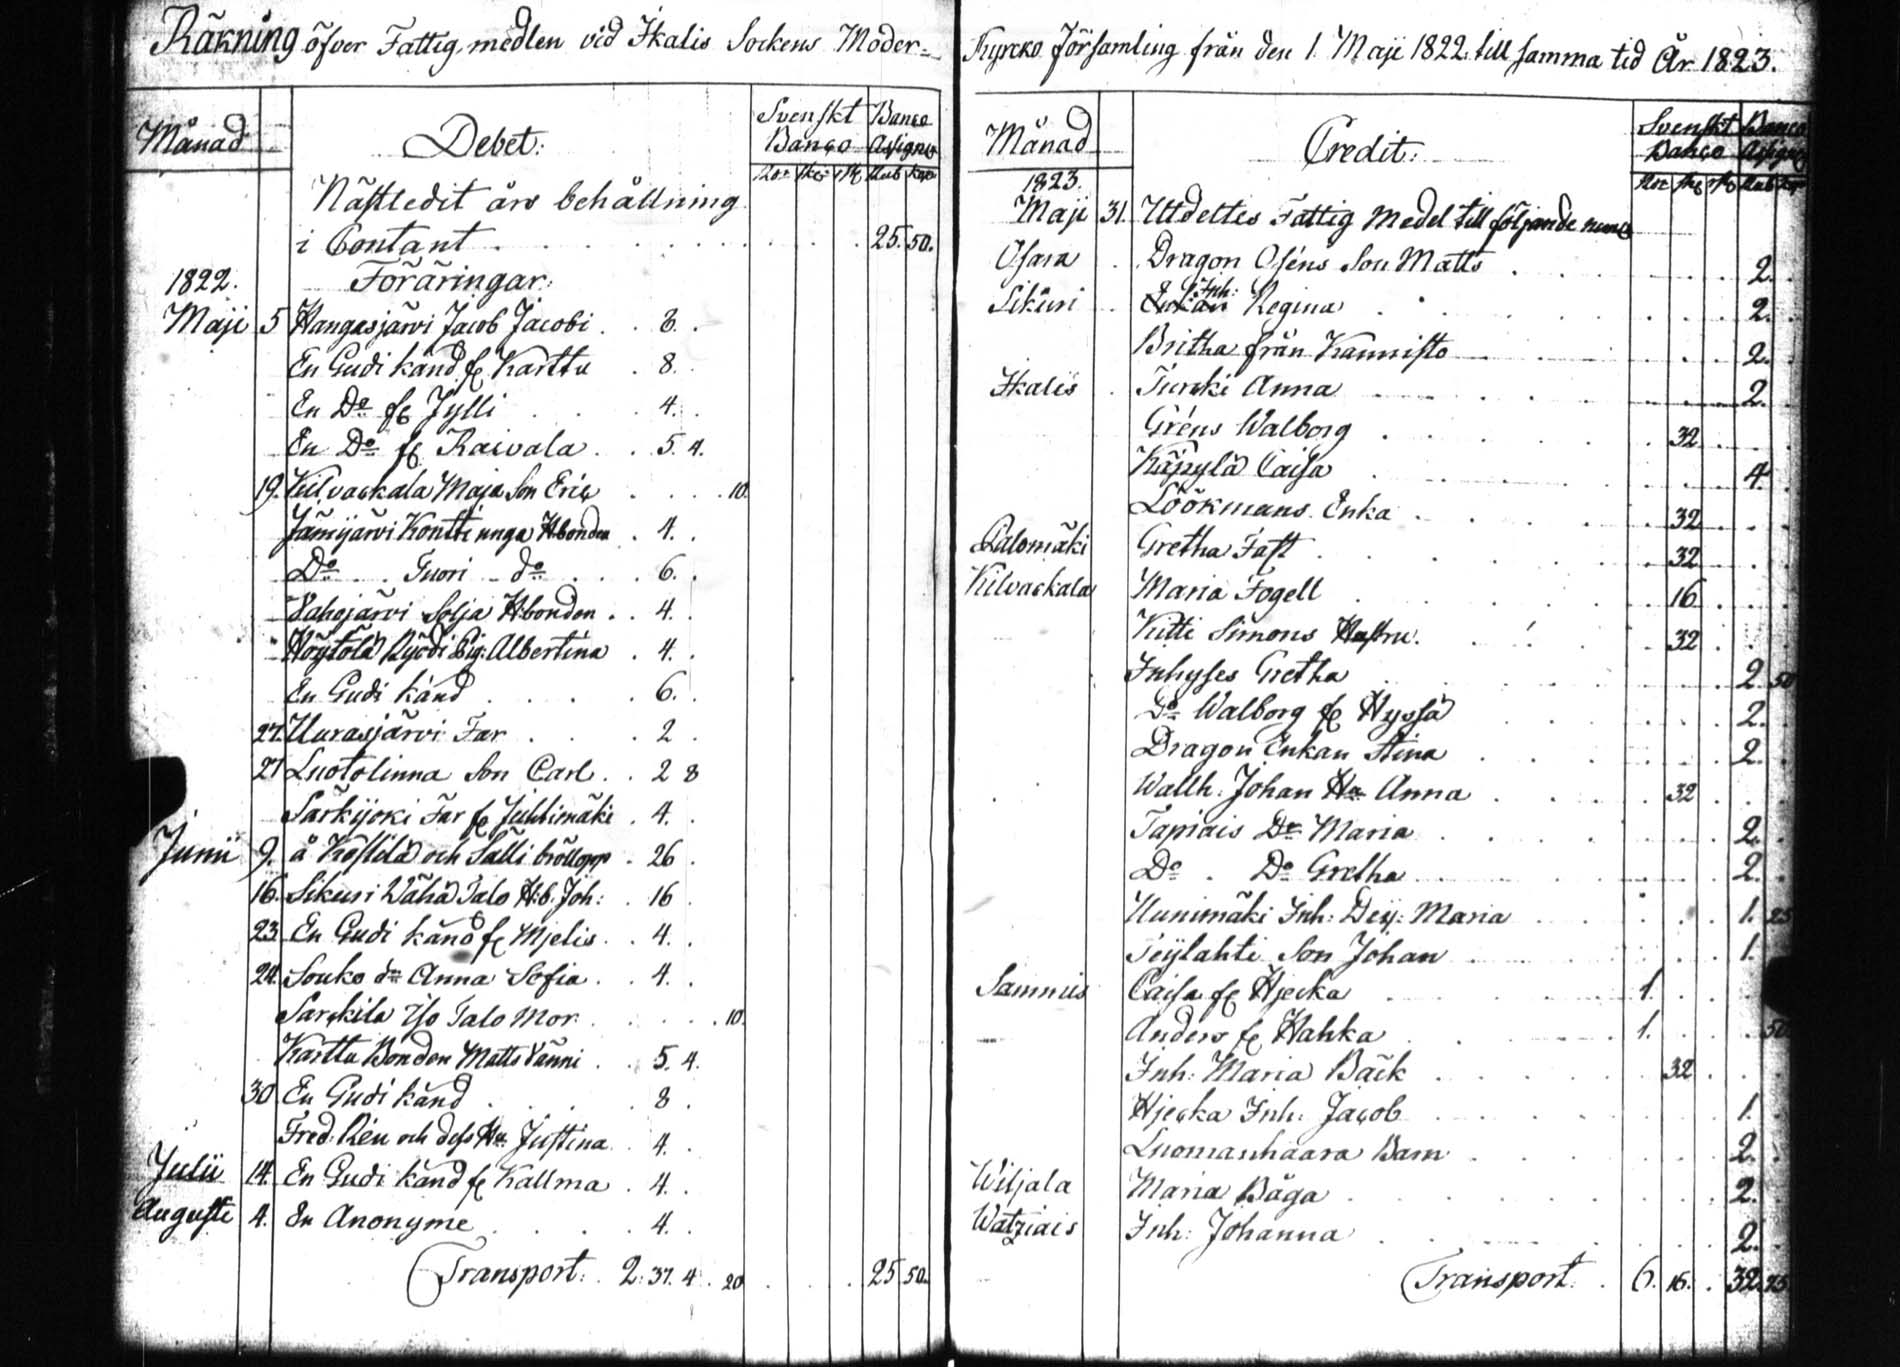 Räkning öfver Fattig medlen vid Ikalis Sockens Moder=
Månad Debet: Svenskt Banco Banco Assigner
Rdr sk: rst Rub kop
Nästledit års behållning
i Contant . . . 25. 50.
1822. Föräringar:
Maji 5 Hangasjärvi Jacob Jacobi . . 8. .
En Gudi känd fr Karttu . 8. .
En Do fr Jylli . . . 4. .
En Do fr Raivala . . 5. 4.
19. Kilvackala Maja Son Eric . . . . 10.
Jämijärvi Kontti unga H:bonden . 4. .
Do . . Tuori do . . . 6. .
Vahojärvi Solja H:bonden . . 4. .
Höytölä Ryödi Pig: Albertina . 4. .
En Gudi känd . . . 6. .
27. Uurasjärvi Far . . . 2 .
27 Luotolinna Son Carl . . 2 8
Särkijoki Far fr Juhtimäki . 4. .
Junii 9. å Kostila och Sälli bröllopp . 26 .
16. Sikuri Vähä Talo H:b. Joh: . 16 .
23. En Gudi känd fr Mjelis . . 4. .
24. Souko dr Anna Sofia . . 4. .
Sarkkila Iso Talo Mor . . . . . 10.
Karttu Bonden Matts Vänni . . 5. 4.
30 En Gudi känd . . . 8 .
Fred: Rén och dess Hu Justina . 4. .
Julii 14. En Gudi känd fr Kallma . 4. .
Augusti 4. En Anonyme . . . 4. .
Transport: . 2. 37. 4 . 20 . . . 25. 50.
Kyrko Församling från den 1. Maji 1822. till samma tid År 1823.
Månad Credit: Svenskt Banco Banco Assigner
Rdr sk rst Rub kop
1823.
Maji 31. Utdeltes Fattig Medel till följande nemr
Osara . Dragon Oséns Son Matts . . . 2. .
Sikuri . Inh: Regina . . . 2. .
Britha från Kannisto . . . 2. .
Ikalis . Turcki Anna . . . 2. .
Gréns Walborg . . . 32 . . .
Käpylä Caisa . . . 4. .
Löökmans Enka . . . 32 . . .
Palomäki Gretha Fast . . . 32 . . .
Kilvackala Maria Fogell . . . 16 . . .
Kitti Simons Hustru . . . 32 . . .
Inhyses Gretha . . . 2 50
Do Walborg fr Hyssä . . . 2. .
Dragon Enkan Stina . . . 2. .
Wallh: Johan Hu Anna . . . 32 . . .
Tapiais Dr Maria . . . 2. .
Do . Do Gretha . . . 2. .
Uunimäki Inh: Dej: Maria . . . 1. 25
Teylahti Son Johan . . . 1. .
Sammis Caisa fr Hjecka . . . 1. . . .
— Anders fr Hahka . . . 1. . . . 50
Inh: Maria Bäck . . . 32 . . .
Hjecka Inh: Jacob . . . 1. .
Luomanhaara Barn . . . 2. .
Wiljala Maria Båga . . . 2. .
Watziais Inh: Johanna . . . 2. .
Transport . . 6. 16. . 32. 25